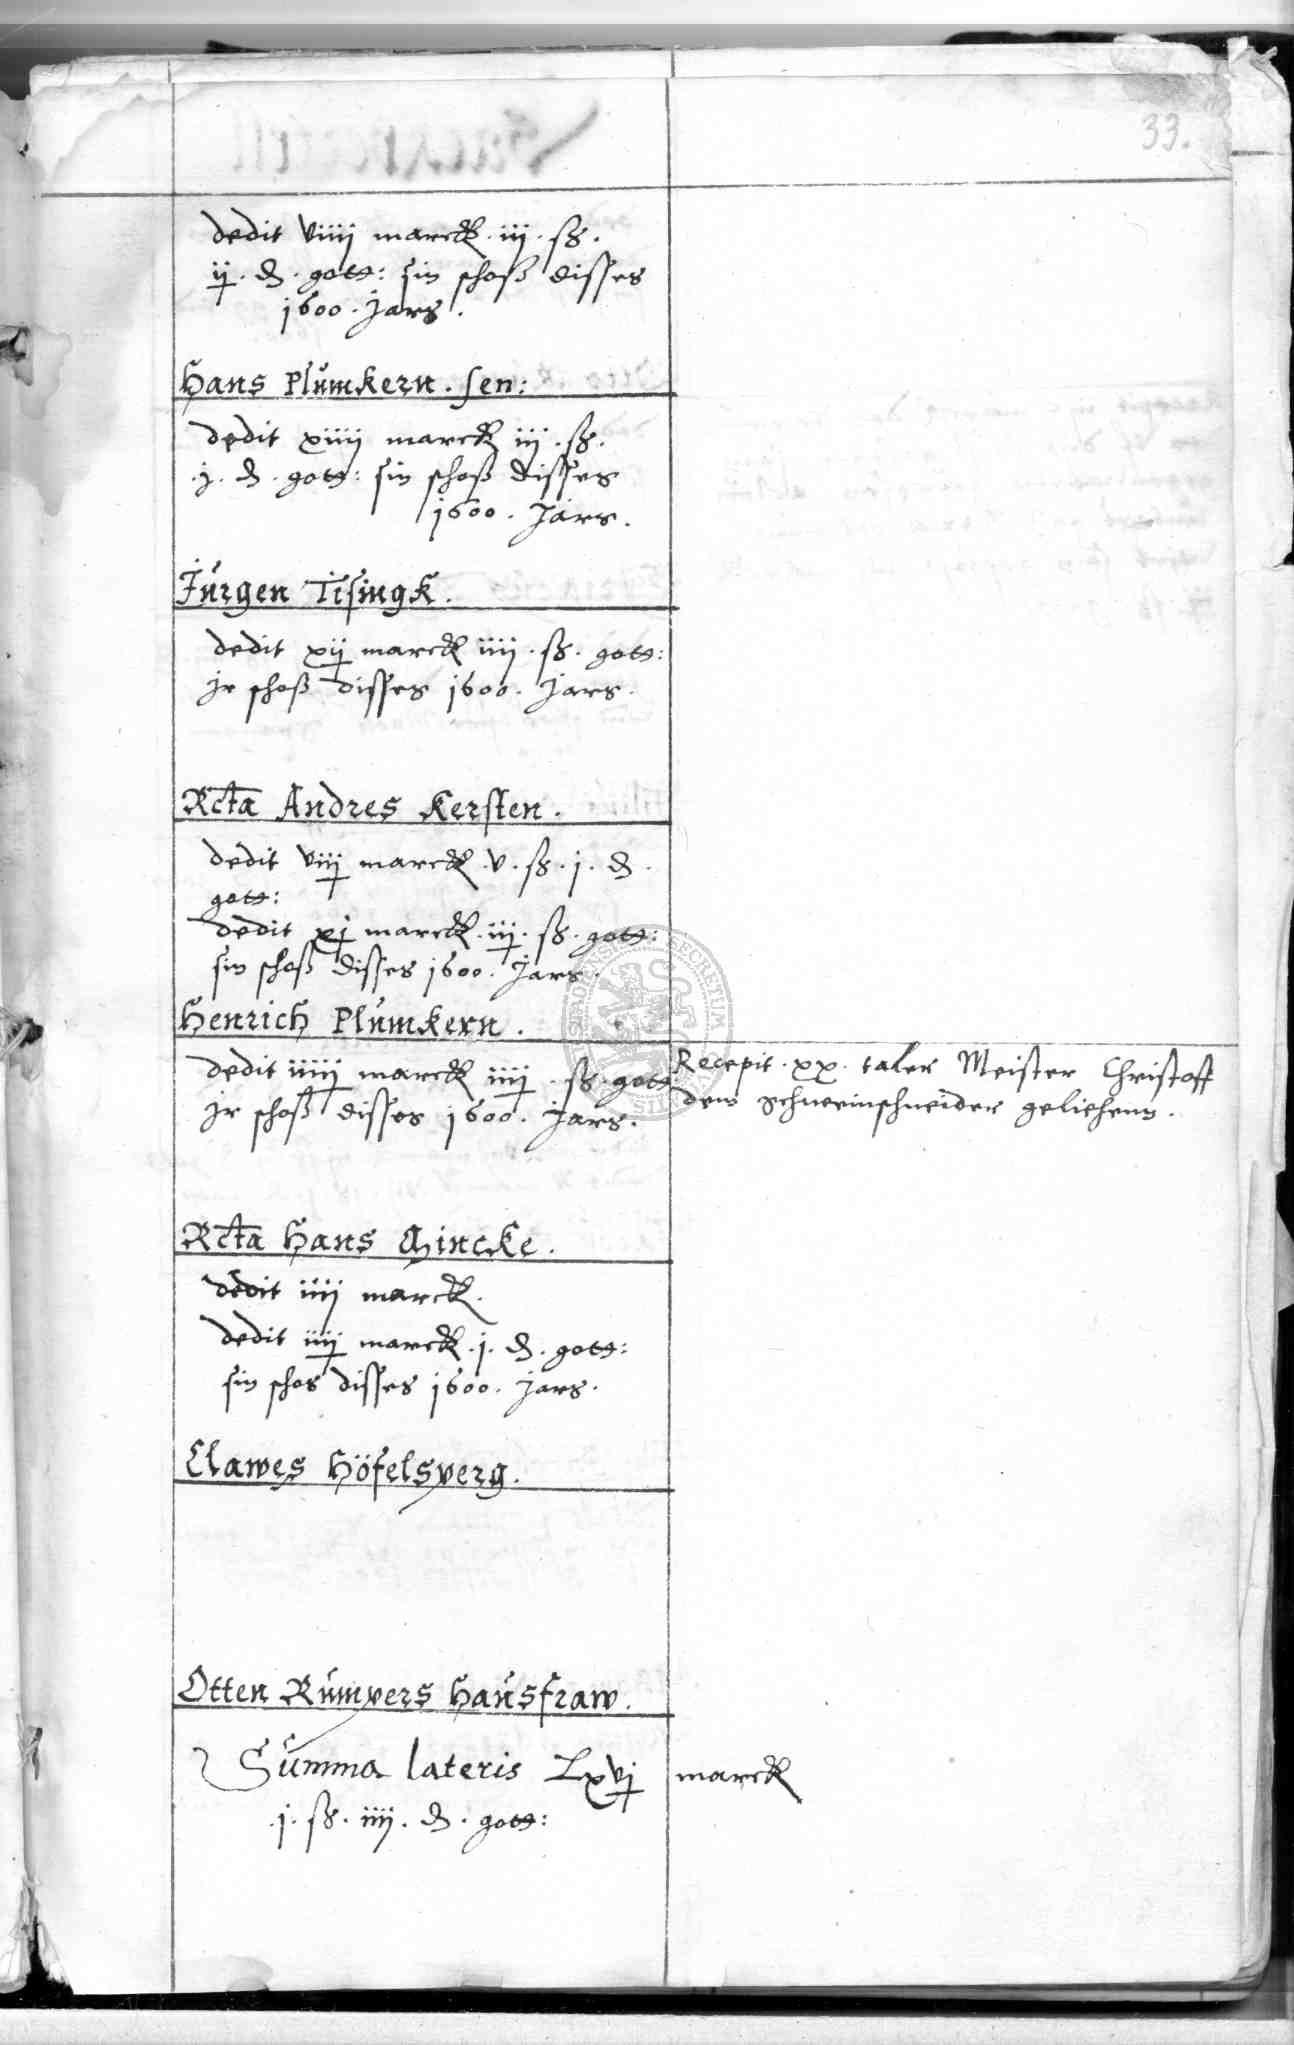 33.
dedit viiij marck. iij. sß.
ij. d. gott: sin schoß disses
1600. Jars.
Hans Plumkern. sen:
dedit xiiij marck iij. sß.
.j. d. gott: sin schoß disses
1600. Jars.
Jürgen Tisingk.
dedit xij marck iiij. sß. gott:
jr schoß disses 1600. Jars.
Rcta Andres Kersten.
dedit viij marck. v. sß. j. d.
gott:
dedit xj marck. iij. sß. gott:
sin schoß disses 1600. Jars.
Henrich Plumkern.
dedit iiiij marck iiij. sß. gott
jr schoß disses 1600. Jars.
Recepit. xx. taler Meister Christoff
dem schneinschneider geliehenn.
Rcta Hans Gincke.
dedit iiij marck.
dedit iiij marck. j. d. gott:
sin schos disses 1600. Jars.
Clawes Höfelsperg.
Otten Rumpers Hausfraw.
Summa lateris Lxvj marck
.j. sß. iiij. d. gott:
SECRETUM